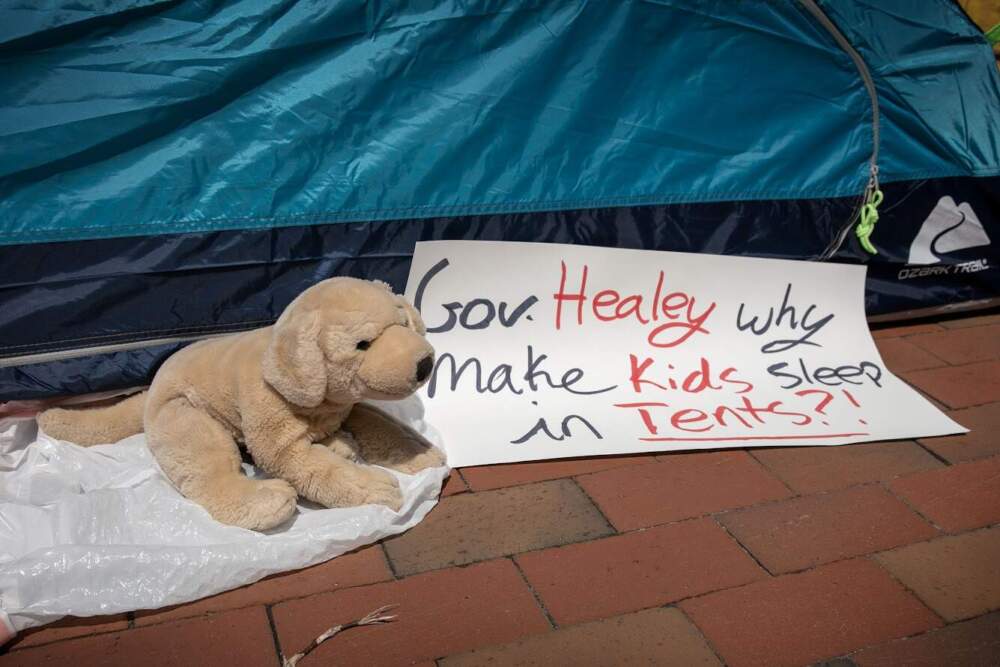 Gov. Healey why
Make Kids sleep
in Tents?!
OZARK TRAIL